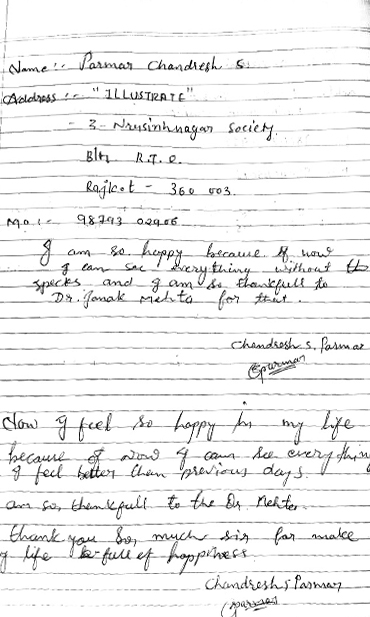 Name :- Parmar Chandresh S.
Address :- "ILLUSTRATE"
- 3- Nrusinhnagar Society.
B/h R.T.O.
Rajkot - 360 003.
Mo :- 98793 02906
I am so happy because of now
I can see everything without
specks and I am so thankfull to
Dr. Janak Mehta for that.
Chandresh S. Parmar
Now I feel so happy in my life
because of now I can see everything
I feel better then previous days.
am so, thankfull to the Dr Mehta.
thank you so, much sir for make
life full of happiness
Chandresh S Parmar